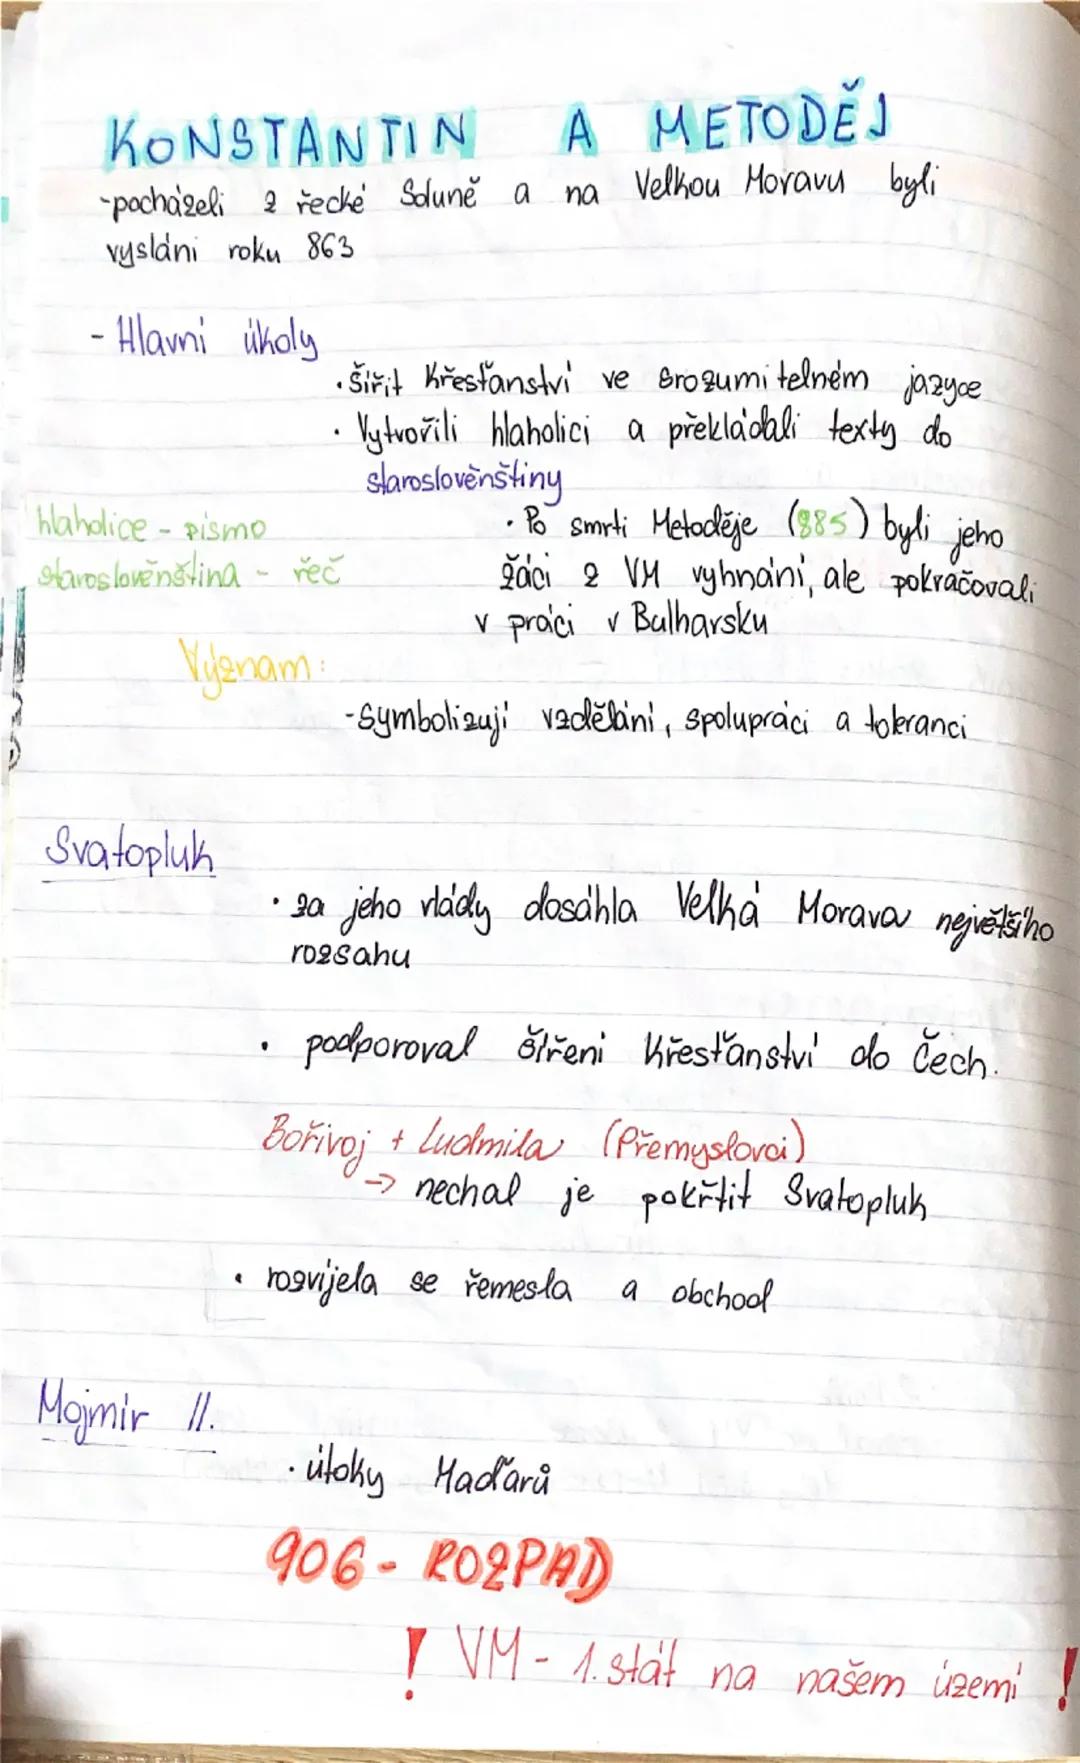 KONSTANTIN A METODĚJ
-pocházeli z řecké Soluně a na Velkou Moravu byli
vysláni roku 863
- Hlavní úkoly
· Šířit křesťanství ve srozumitelném jazyce
· Vytvořili hlaholici a překládali texty do
staroslověnštiny
hlaholice - písmo
staroslověnština - řeč
· Po smrti Metoděje (885) byli jeho
žáci z VM vyhnáni, ale pokračovali
v práci v Bulharsku
Význam:
-Symbolizují vzdělání, spolupráci a toleranci
Svatopluk
· za jeho vlády dosáhla Velká Morava největšího
rozsahu
· podporoval šíření křesťanství do Čech.
Bořivoj + Ludmila (Přemyslovci)
→ nechal je pokřtít Svatopluk
· rozvíjela se řemesla a obchod
Mojmír II.
· útoky Maďarů
906 - ROZPAD
! VM - 1. stát na našem území !